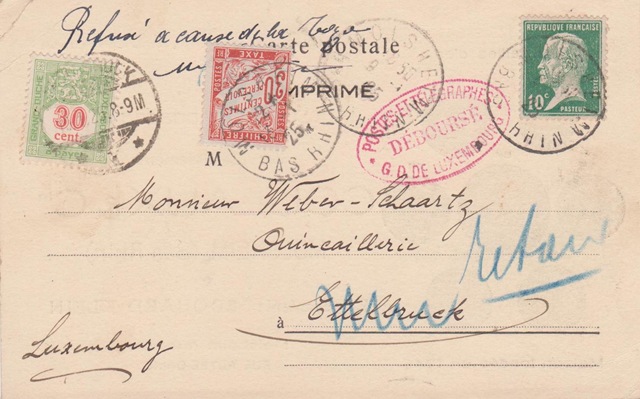 Refusé à cause de la taxe
Carte postale
IMPRIMÉ
30
cent.
8-9M
TAXE
POSTES
30
CENTIMES
À PERCEVOIR
CHIFFRE
BAS RHIN
25
POSTES ET TÉLÉGRAPHES
DÉBOURSÉ
G. D. DE LUXEMBOURG
REPUBLIQUE FRANÇAISE
10c
PASTEUR
POSTES
M
Monsieur Weber-Schaartz
Quincaillerie
à Ettelbruck
retour
Luxembourg